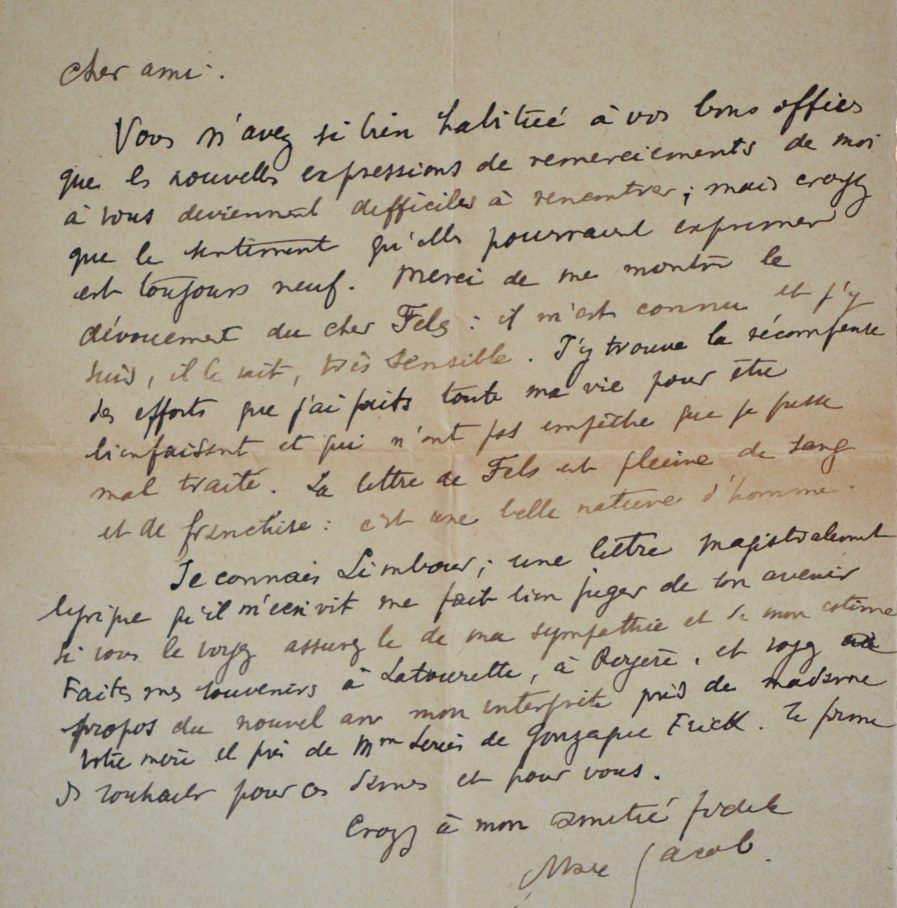 Cher ami.
Vous m'avez si bien habitué à vos bons offices
que les nouvelles expressions de remerciements de moi
à vous deviennent difficiles à rencontrer ; mais croyez
que le sentiment qu'elles pourraient exprimer
est toujours neuf. Merci de me montrer le
dévouement du cher Fels : il m'est connu et j'y
suis, il le sait, très sensible. J'y trouve la récompense
des efforts que j'ai faits toute ma vie pour être
bienfaisant et qui n'ont pas empêché que je fusse
mal traité. La lettre de Fels est pleine de sang
et de franchise : c'est une belle nature d'homme.
Je connais Limbour ; une lettre magistralement
lyrique qu'il m'écrivit me fait bien juger de son avenir
si vous le voyez assurez le de ma sympathie et de mon estime
Faites mes souvenirs à Latourette, à , et soyez
propos du nouvel an mon interprète près de madame
votre mère et près de Mme de Gonzague Frick. Je forme
des souhaits pour ces dames et pour vous.
Croyez à mon amitié fidele
Max Jacob.